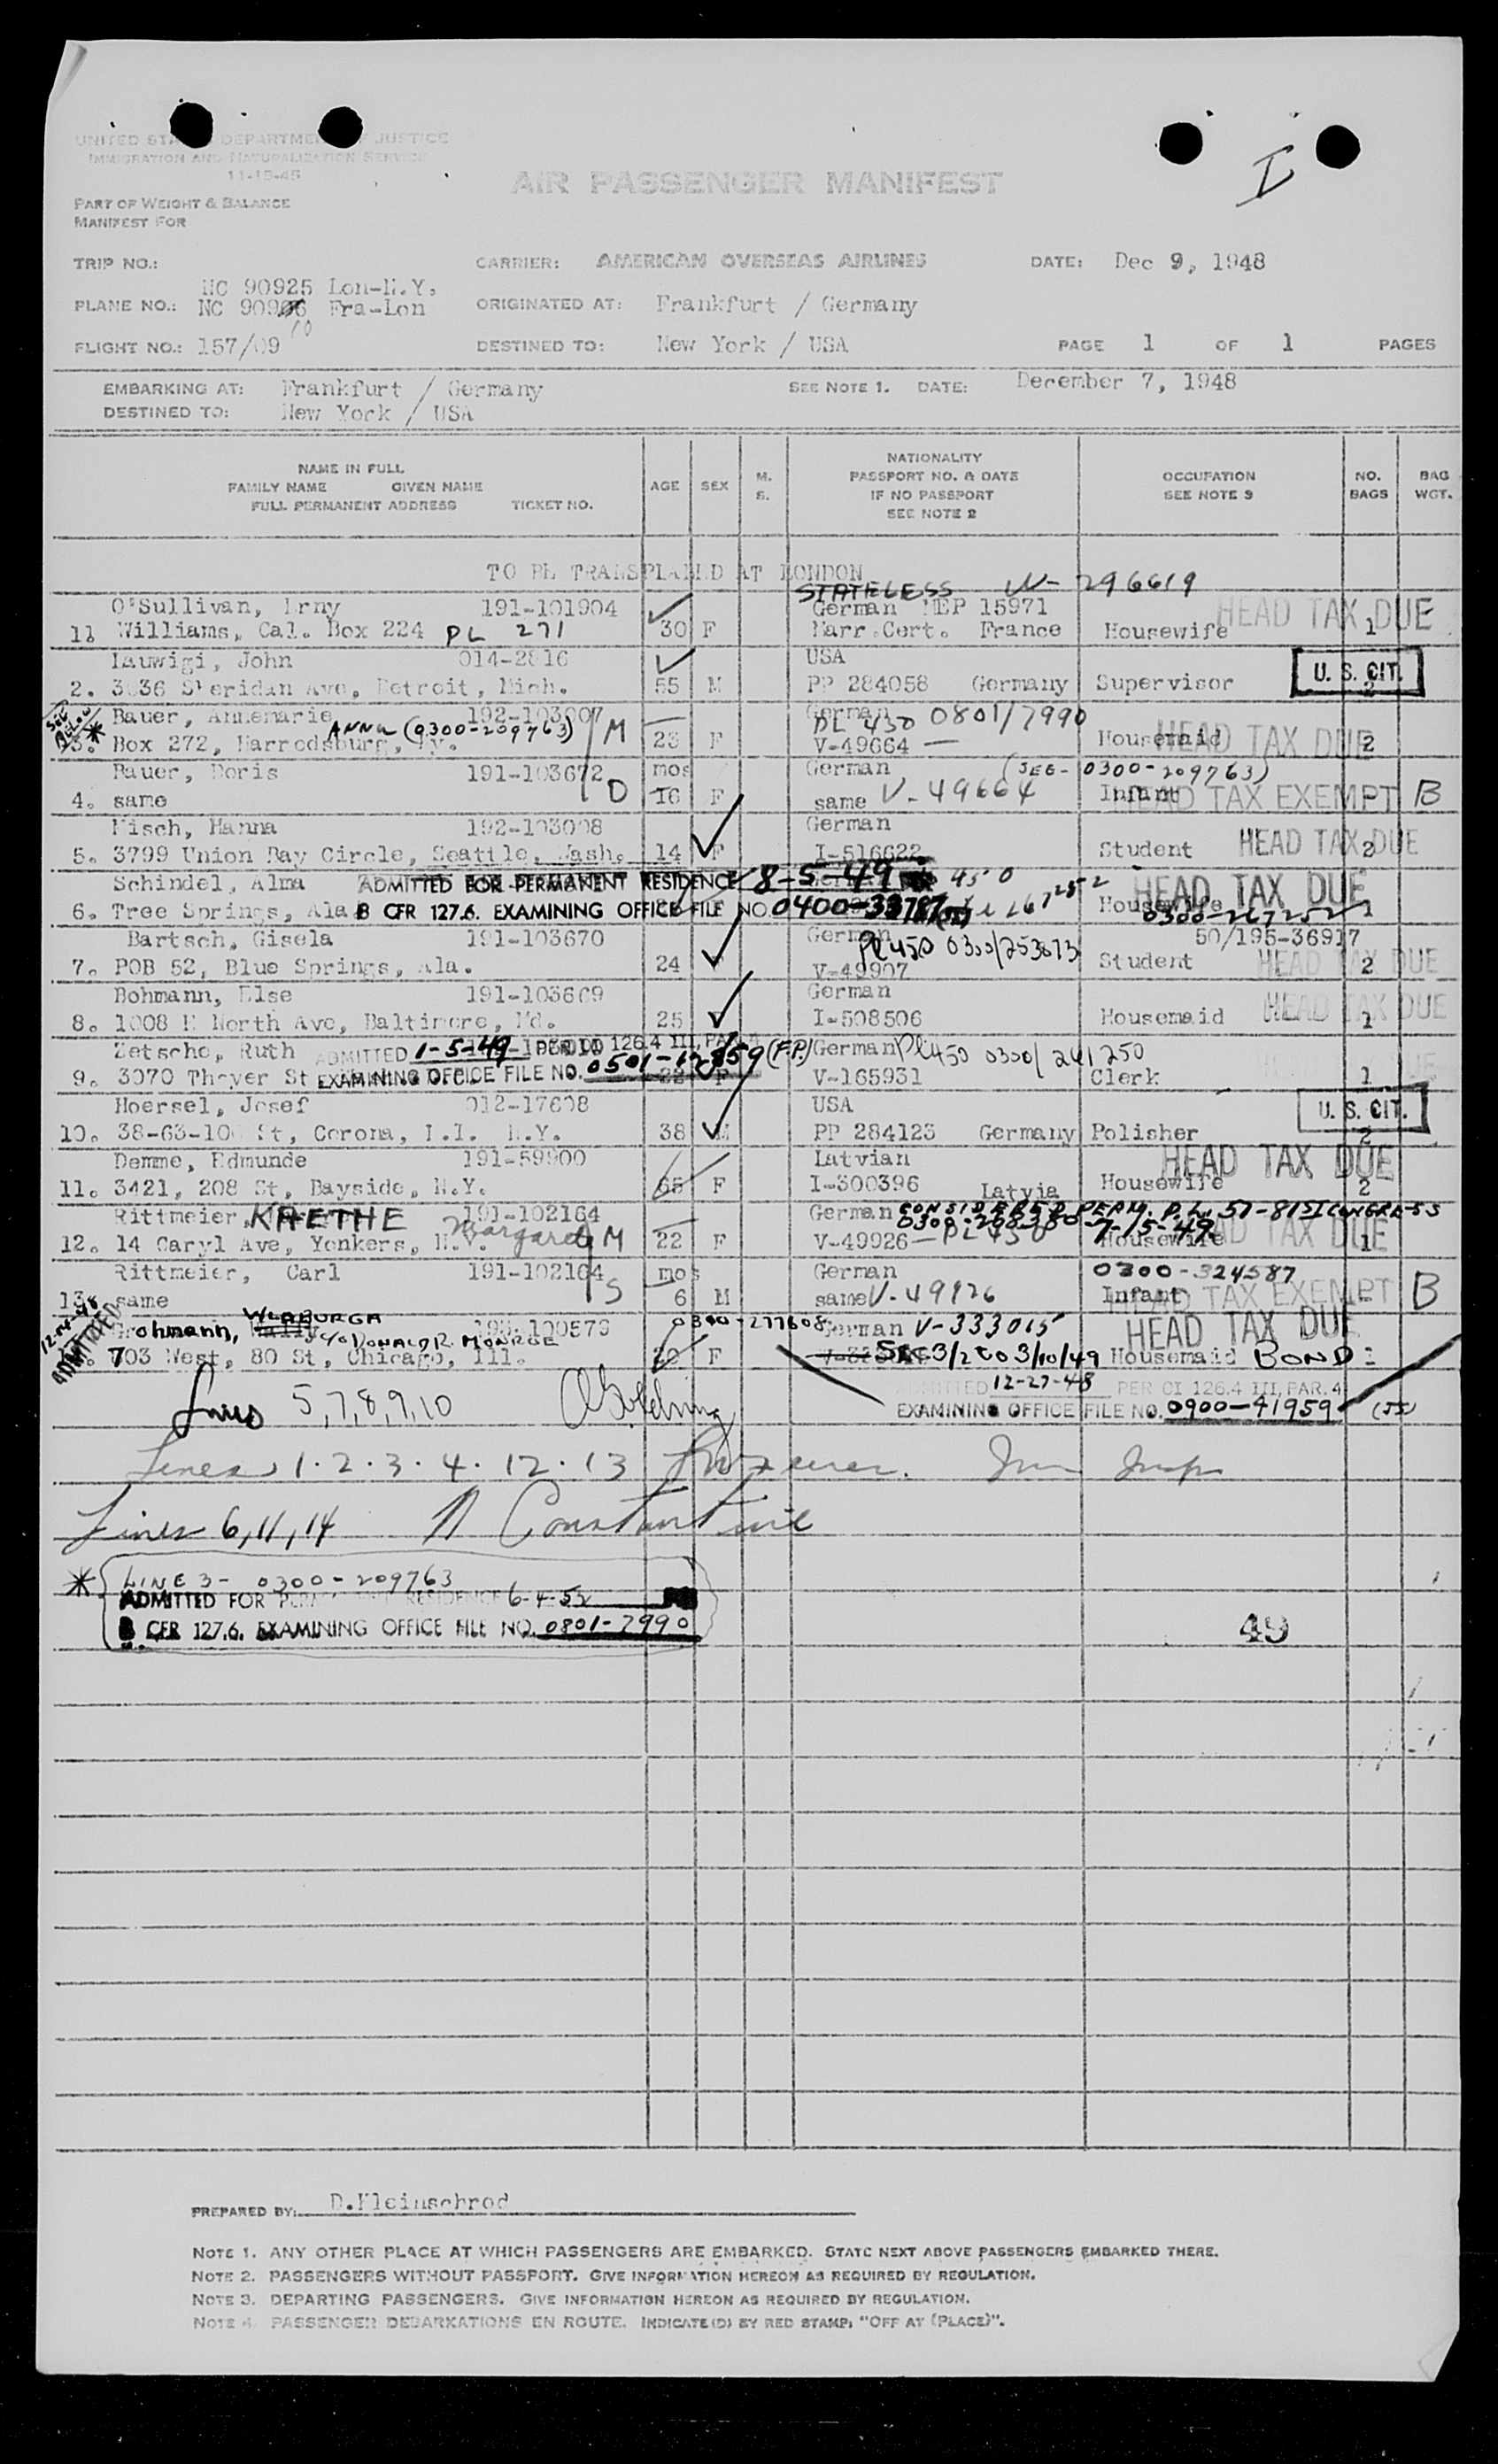 I
UNITED STATES DEPARTMENT OF JUSTICE
IMMIGRATION AND NATURALIZATION SERVICE
11-19-45
AIR PASSENGER MANIFEST
PART OF WEIGHT & BALANCE
MANIFEST FOR
TRIP NO.:
CARRIER: AMERICAN OVERSEAS AIRLINES
DATE: Dec 9, 1948
NC 90925 Lon-N.Y.
PLANE NO.: NC 909 Fra-Lon
10
ORIGINATED AT: Frankfurt / Germany
FLIGHT NO.: 157/09
DESTINED TO: New York / USA
PAGE 1 OF 1 PAGES
EMBARKING AT: Frankfurt / Germany
SEE NOTE 1. DATE: December 7, 1948
DESTINED TO: New York / USA
NAME IN FULL
FAMILY NAME GIVEN NAME
FULL PERMANENT ADDRESS TICKET NO.
AGE
SEX
M. S.
NATIONALITY
PASSPORT NO. & DATE
IF NO PASSPORT
SEE NOTE 2
OCCUPATION
SEE NOTE 3
NO. BAGS
BAG WGT.
TO BE TRANSPLANED AT LONDON
STATELESS V- 296619
O'Sullivan, Erny 191-101904 German MEP 15971 HEAD TAX DUE
Williams, Cal. Box 224 PL 271 30 F Marr.Cert. France Housewife 1
Lauwigi, John 014-2816 USA
2. 3636 Sheridan Ave, Detroit, Mich. 55 M PP 284058 Germany Supervisor U. S. CIT. 2
SEE BELOW * Bauer, Annemarie 192-103007 German PL 450 0801/7990
ANNA (0300-209763) M
3. Box 272, Harrodsburg, Ky. 23 F V-49664 Housemaid HEAD TAX DUE 2
Bauer, Doris 191-103672 mos German (SEE- 0300-209763)
4. same D 16 F same V-49664 Infant HEAD TAX EXEMPT B
Misch, Hanna 192-103008 German
5. 3799 Union Bay Circle, Seattle, Wash. 14 F I-516622 Student HEAD TAX DUE 2
Schindel, Alma ADMITTED FOR PERMANENT RESIDENCE 8-5-49 450 HEAD TAX DUE
6. Tree Springs, Ala 8 CFR 127.6. EXAMINING OFFICE FILE NO. 0400-33787 Housewife 0300-267252 1
Bartsch, Gisela 191-103670 German PL 450 0300/253673 50/195-36917
7. POB 52, Blue Springs, Ala. 24 V-49907 Student HEAD TAX DUE 2
Bohmann, Else 191-103669 German
8. 1008 E North Ave, Baltimore, Md. 25 I-508506 Housemaid HEAD TAX DUE 1
Zetsche, Ruth ADMITTED 1-5-49 PER OI 126.4 III, PAR. 4 German PL 450 0300/241250
9. 3070 Thayer St EXAMINING OFFICE FILE NO. 0501-12859 (F.P.) 22 F V-165931 Clerk 1
Hoersel, Josef 012-17608 USA
10. 38-63-10 St, Corona, L.I. N.Y. 38 M PP 284123 Germany Polisher U. S. CIT. 2
Demme, Edmunde 191-59900 Latvian HEAD TAX DUE
11. 3421, 208 St, Bayside, N.Y. 65 F I-300396 Latvia Housewife 2
Rittmeier, KAETHE 191-102164 German CONSIDERED PERM. P.L. 57-81ST CONGRESS
Margarete M 0300-268380 7-15-49
12. 14 Caryl Ave, Yonkers, N.Y. 22 F V-49926 - PL 450 Housewife HEAD TAX DUE 1
Rittmeier, Carl 191-102164 mos German 0300-324587
13. same S 6 M same V-49926 Infant HEAD TAX EXEMPT B
12-14-48 ADMITTED
WLABURGA
Grohmann, c/o DONALD R. MONROE 0300-277608 German V-333015 HEAD TAX DUE
703 West, 80 St, Chicago, Ill. F SEC 3/2 to 3/10/49 Housemaid BOND
ADMITTED 12-27-48 PER OI 126.4 III, PAR. 4
EXAMINING OFFICE FILE NO. 0900-41959 (JJ)
Lines 5,7,8,9,10
Lines 1·2·3·4·12·13 Imm Insp
Lines 6,11,14 N Constantine
* LINE 3- 0300-209763
ADMITTED FOR PERMANENT RESIDENCE 6-4-52
8 CFR 127.6. EXAMINING OFFICE FILE NO. 0801-7990
49
PREPARED BY: D.Kleinschrod
NOTE 1. ANY OTHER PLACE AT WHICH PASSENGERS ARE EMBARKED. STATE NEXT ABOVE PASSENGERS EMBARKED THERE.
NOTE 2. PASSENGERS WITHOUT PASSPORT. GIVE INFORMATION HEREON AS REQUIRED BY REGULATION.
NOTE 3. DEPARTING PASSENGERS. GIVE INFORMATION HEREON AS REQUIRED BY REGULATION.
NOTE 4. PASSENGER DEBARKATIONS EN ROUTE. INDICATE(D) BY RED STAMP: "OFF AT (PLACE)".